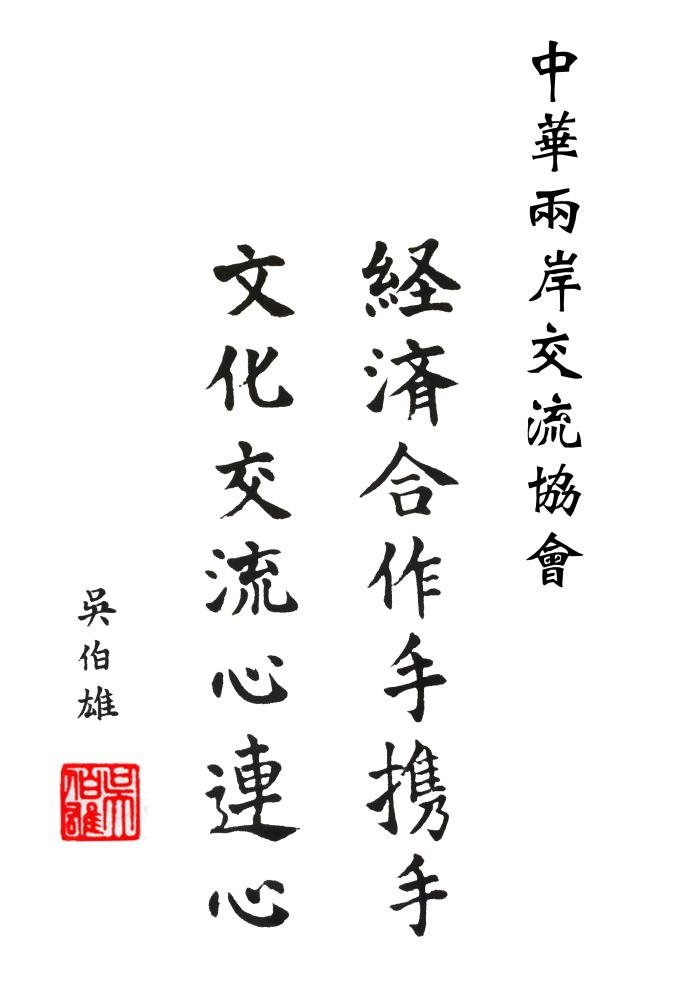 中華兩岸交流協會
経済合作手携手
文化交流心連心
吳伯雄
吳伯雄